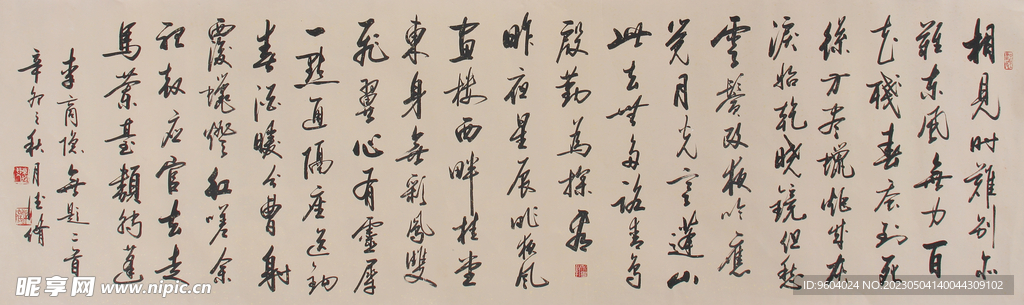 相見时難别亦
難东风無力百
花殘春蚕到死
絲方尽蠟炬成灰
淚始乾曉鏡但愁
雲鬢改夜吟應
覚月光寒蓬山
此去無多路青鸟
殷勤為探看
昨夜星辰昨夜风
画楼西畔桂堂
東身無彩鳳雙
飛翼心有靈犀
一點通隔座送鈎
春酒暖分曹射
覆蠟燈红嗟余
聽鼓应官去走
馬蘭臺類轉蓬
李商隐無题二首
辛卯之秋月
昵享网 www.nipic.cn
ID:9604024 NO:20230504140044309102